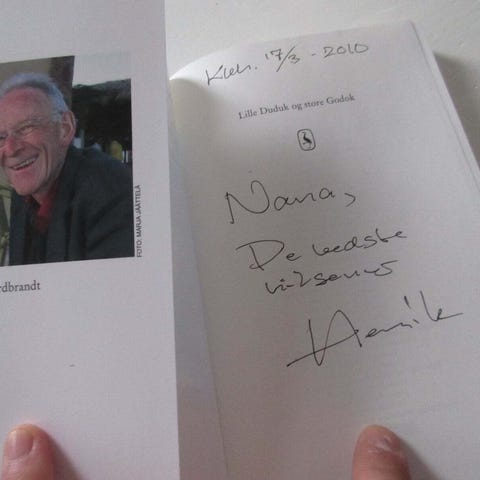 FOTO: MARJA JÄÄTTELÄ
rdbrandt
Kbh. 17/3 - 2010
Lille Duduk og store Godok
Nana,
De bedste
hilsener
Henrik